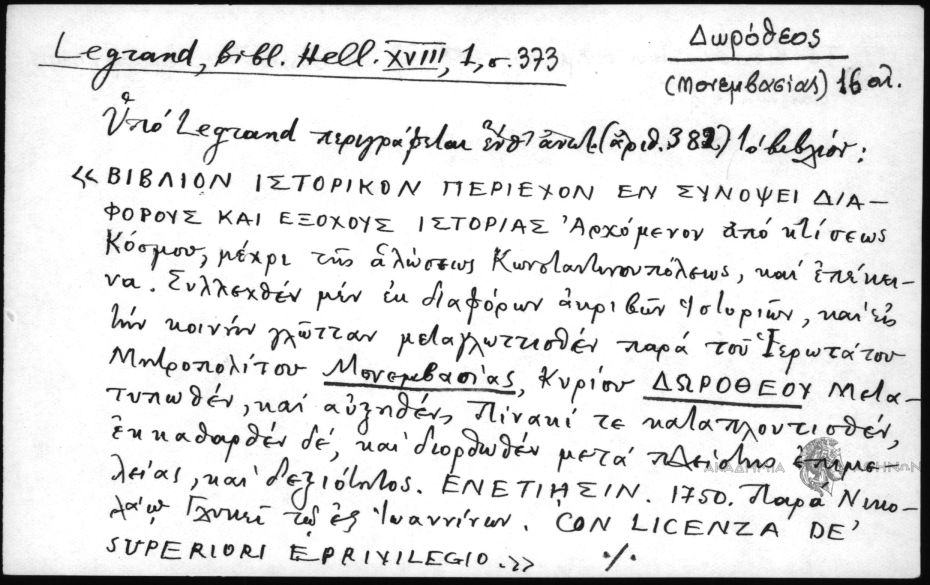 Legrand, bibl. Hell. XVIII, 1, σ. 373
Δωρόθεος
(Μονεμβασίας) 16 αι.
Ὑπό Legrand περιγράφεται ἐνθ' ἀνωτ. (ἀριθ. 382) τό βιβλίον:
«ΒΙΒΛΙΟΝ ΙΣΤΟΡΙΚΟΝ ΠΕΡΙΕΧΟΝ ΕΝ ΣΥΝΟΨΕΙ ΔΙΑ-
ΦΟΡΟΥΣ ΚΑΙ ΕΞΟΧΟΥΣ ΙΣΤΟΡΙΑΣ Ἀρχόμενον ἀπό κτίσεως
Κόσμου, μέχρι τῆς ἁλώσεως Κωνσταντινουπόλεως, καί ἐπέκει-
να. Συλλεχθέν μέν ἐκ διαφόρων ἀκριβῶν Ἱστοριῶν, καί εἰς
τήν κοινήν γλῶτταν μεταγλωττισθέν παρά τοῦ Ἱερωτάτου
Μητροπολίτου Μονεμβασίας, Κυρίου ΔΩΡΟΘΕΟΥ Μετα-
τυπωθέν, καί αὐξηθέν, Πίνακί τε καταπλουτισθέν,
ἐκκαθαρθέν δέ, καί διορθωθέν μετά πλείστης ἐπιμε-
λείας, καί δεξιότητος. ΕΝΕΤΙΗΣΙΝ. 1750. Παρά Νικο-
λάῳ Γλυκεῖ τῷ ἐξ Ἰωαννίνων. CON LICENZA DE'
SUPERIORI E PRIVILEGIO.» ./.
ΑΚΑΔΗΜΙΑ ΑΘΗΝΩΝ